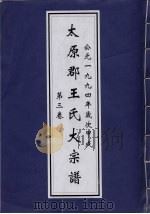 公元一九九四年歲次甲戌
太原郡王氏大宗譜
第三卷